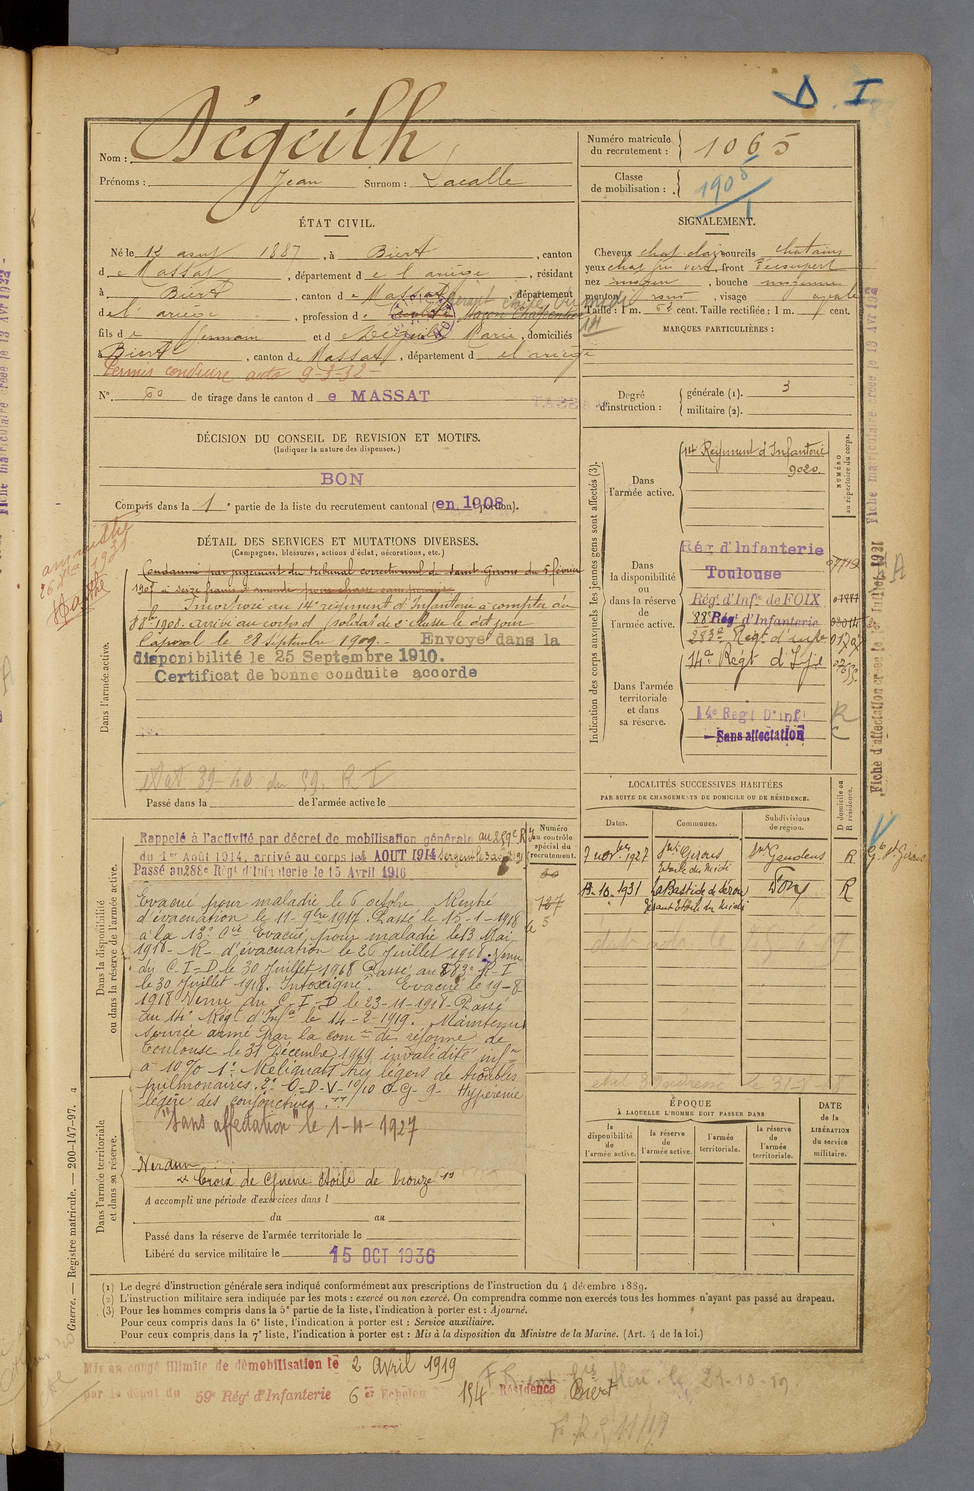 D. I
Nom : Dégeilh
Prénoms : Jean Surnom : Lacalle
Numéro matricule du recrutement : 1065
Classe de mobilisation : 1908
ÉTAT CIVIL.
Né le 12 1887, à Biert, canton
de Massat, département de l'ariège, résidant
à Biert, canton de Massat, département
de l'ariège, profession de maçon charpentier
fils de Germain et de Marie, domiciliés
à Biert, canton de Massat, département de l'ariège
Permis conduire auto 9-3-32
N° 60 de tirage dans le canton de MASSAT
SIGNALEMENT.
Cheveux chat clair sourcils chatains
yeux chat front découvert
nez moyen, bouche moyenne
menton rond, visage ovale
Taille : 1 m. cent. Taille rectifiée : 1 m. cent.
MARQUES PARTICULIÈRES :
Degré d'instruction : générale (1). 3
militaire (2).
DÉCISION DU CONSEIL DE REVISION ET MOTIFS.
(Indiquer la nature des dispenses.)
BON
Compris dans la 1e partie de la liste du recrutement cantonal (en 1908 portion).
DÉTAIL DES SERVICES ET MUTATIONS DIVERSES.
(Campagnes, blessures, actions d'éclat, décorations, etc.)
Dans l'armée active.
Condamné par jugement du tribunal correctionnel de Saint Girons du 5 février
1907 à seize francs d'amende
Incorporé au 14e régiment d'Infanterie à compter du
8 8bre 1908. Arrivé au corps et soldat de 2e classe le dit jour
Caporal le 28 Septembre 1909. Envoyé dans la
disponibilité le 25 Septembre 1910.
Certificat de bonne conduite accordé
Passé dans la de l'armée active le
Indication des corps auxquels les jeunes gens sont affectés (3).
NUMÉRO au répertoire du corps.
Dans l'armée active.
14e Régiment d'Infanterie
9020
Dans la disponibilité ou dans la réserve de l'armée active.
Rég d'Infanterie
Toulouse
Régt d'Infie de FOIX
88e Régt d'Infanterie
283e Régt d'infie
14e Régt d'Infie
Dans l'armée territoriale et dans sa réserve.
14e Regt D'inf
Sans affectation
Fiche matriculaire créée le 13 Avr 1932
LOCALITÉS SUCCESSIVES HABITÉES
PAR SUITE DE CHANGEMENTS DE DOMICILE OU DE RÉSIDENCE.
Dates. Communes. Subdivisions de région. D domicile ou R résidence.
7 nov 1927 St Girons St Gaudens R
Etoile du Midi
13-10-1931 La Bastide de Sérou Foix R
Gérant Etoile du Midi
Dans la disponibilité ou dans la réserve de l'armée active.
Numéro au contrôle spécial du recrutement.
Rappelé à l'activité par décret de mobilisation générale au 259e R
du 1er Août 1914, arrivé au corps le 4 AOUT 1914
Passé au 288e Régt d'Infanterie le 15 Avril 1916
Evacué pour maladie le 6 octobre Rentré
d'évacuation le 11-9bre 1917. Passé le 15-1-1918
à la 13e Cie Evacué pour maladie le 13 Mai
1918 - R- d'évacuation le 26 Juillet 1918. Venu
du C-I-D le 30 Juillet 1918 Passé au 283e R-I
le 30 Juillet 1918. Intoxiqué. Evacué le 19-8
1918 Venu du C-I-D le 23-11-1918. Passé
au 14e Régt d'Infie le 14-2-1919. Maintenu
service armé par la comon de réforme de
Toulouse le 31 Décembre 1919 invalidité infre
à 10% 1° Reliquats très légers de troubles
pulmonaires. 2° O-D-V- 10/10 O-G- 9- Hyperémie
légère des conjonctives
"Sans affectation" le 1-4-1927
Dans l'armée territoriale et dans sa réserve.
Verdun
Croix de Guerre étoile de bronze
A accompli une période d'exercices dans l
du au
Passé dans la réserve de l'armée territoriale le
Libéré du service militaire le 15 OCT 1936
ÉPOQUE
À LAQUELLE L'HOMME DOIT PASSER DANS
la disponibilité de l'armée active. la réserve de l'armée active. l'armée territoriale. la réserve de l'armée territoriale.
DATE de la LIBÉRATION du service militaire.
Guerre. — Registre matricule. — 200-147-97.
(1) Le degré d'instruction générale sera indiqué conformément aux prescriptions de l'instruction du 4 décembre 1889.
(2) L'instruction militaire sera indiquée par les mots : exercé ou non exercé. On comprendra comme non exercés tous les hommes n'ayant pas passé au drapeau.
(3) Pour les hommes compris dans la 5e partie de la liste, l'indication à porter est : Ajourné.
Pour ceux compris dans la 6e liste, l'indication à porter est : Service auxiliaire.
Pour ceux compris dans la 7e liste, l'indication à porter est : Mis à la disposition du Ministre de la Marine. (Art. 4 de la loi.)
Mis en congé illimité de démobilisation le 2 Avril 1919
par le dépôt du 59e Régt d'Infanterie 6e Echelon 194 Résidence Biert